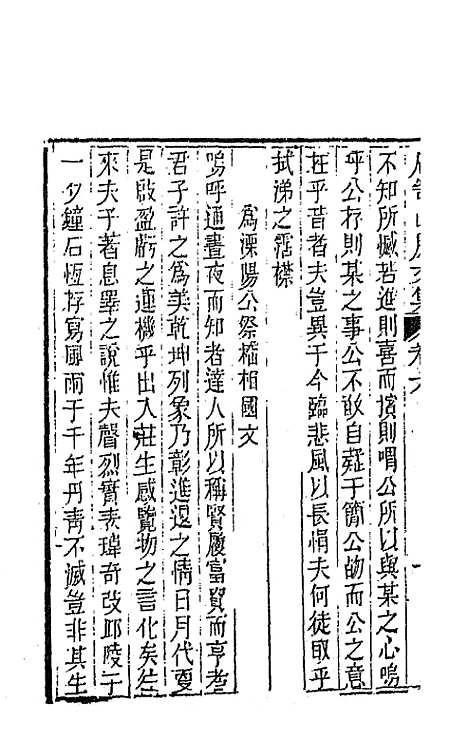 不知所慽若進則喜而擯則喟公所以與某之心嗚
乎公存則某之事公不敢自薙于簡公歿而公之意
在乎昔者夫豈異于今臨悲風以長悁夫何徒取乎
拭涕之霑襟
爲溧陽公祭楿相國文
嗚呼通晝夜而知者達人所以稱賢履富貴而亨者
君子許之爲美乾坤列象乃彰進退之情日月代更
是啟盈虧之運機乎出入莊生感覽物之言化矣往
來夫子著息群之說惟夫聲烈實素瑋奇改邱陵于
一夕鐘石恆存寫風雨于千年丹青不滅豈非其生